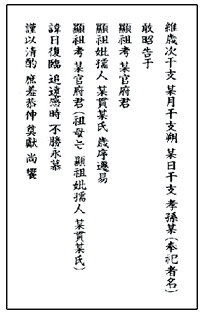 維歲次干支 某月干支朔 某日干支 孝孫某(奉祀者名)
敢昭告于
顯祖考 某官府君
顯祖妣孺人 某貫某氏 歲序遷易
顯祖考 某官府君(祖母는 顯祖妣孺人 某貫某氏)
諱日復臨 追遠感時 不勝永慕
謹以淸酌 庶羞恭伸 奠獻 尙 饗